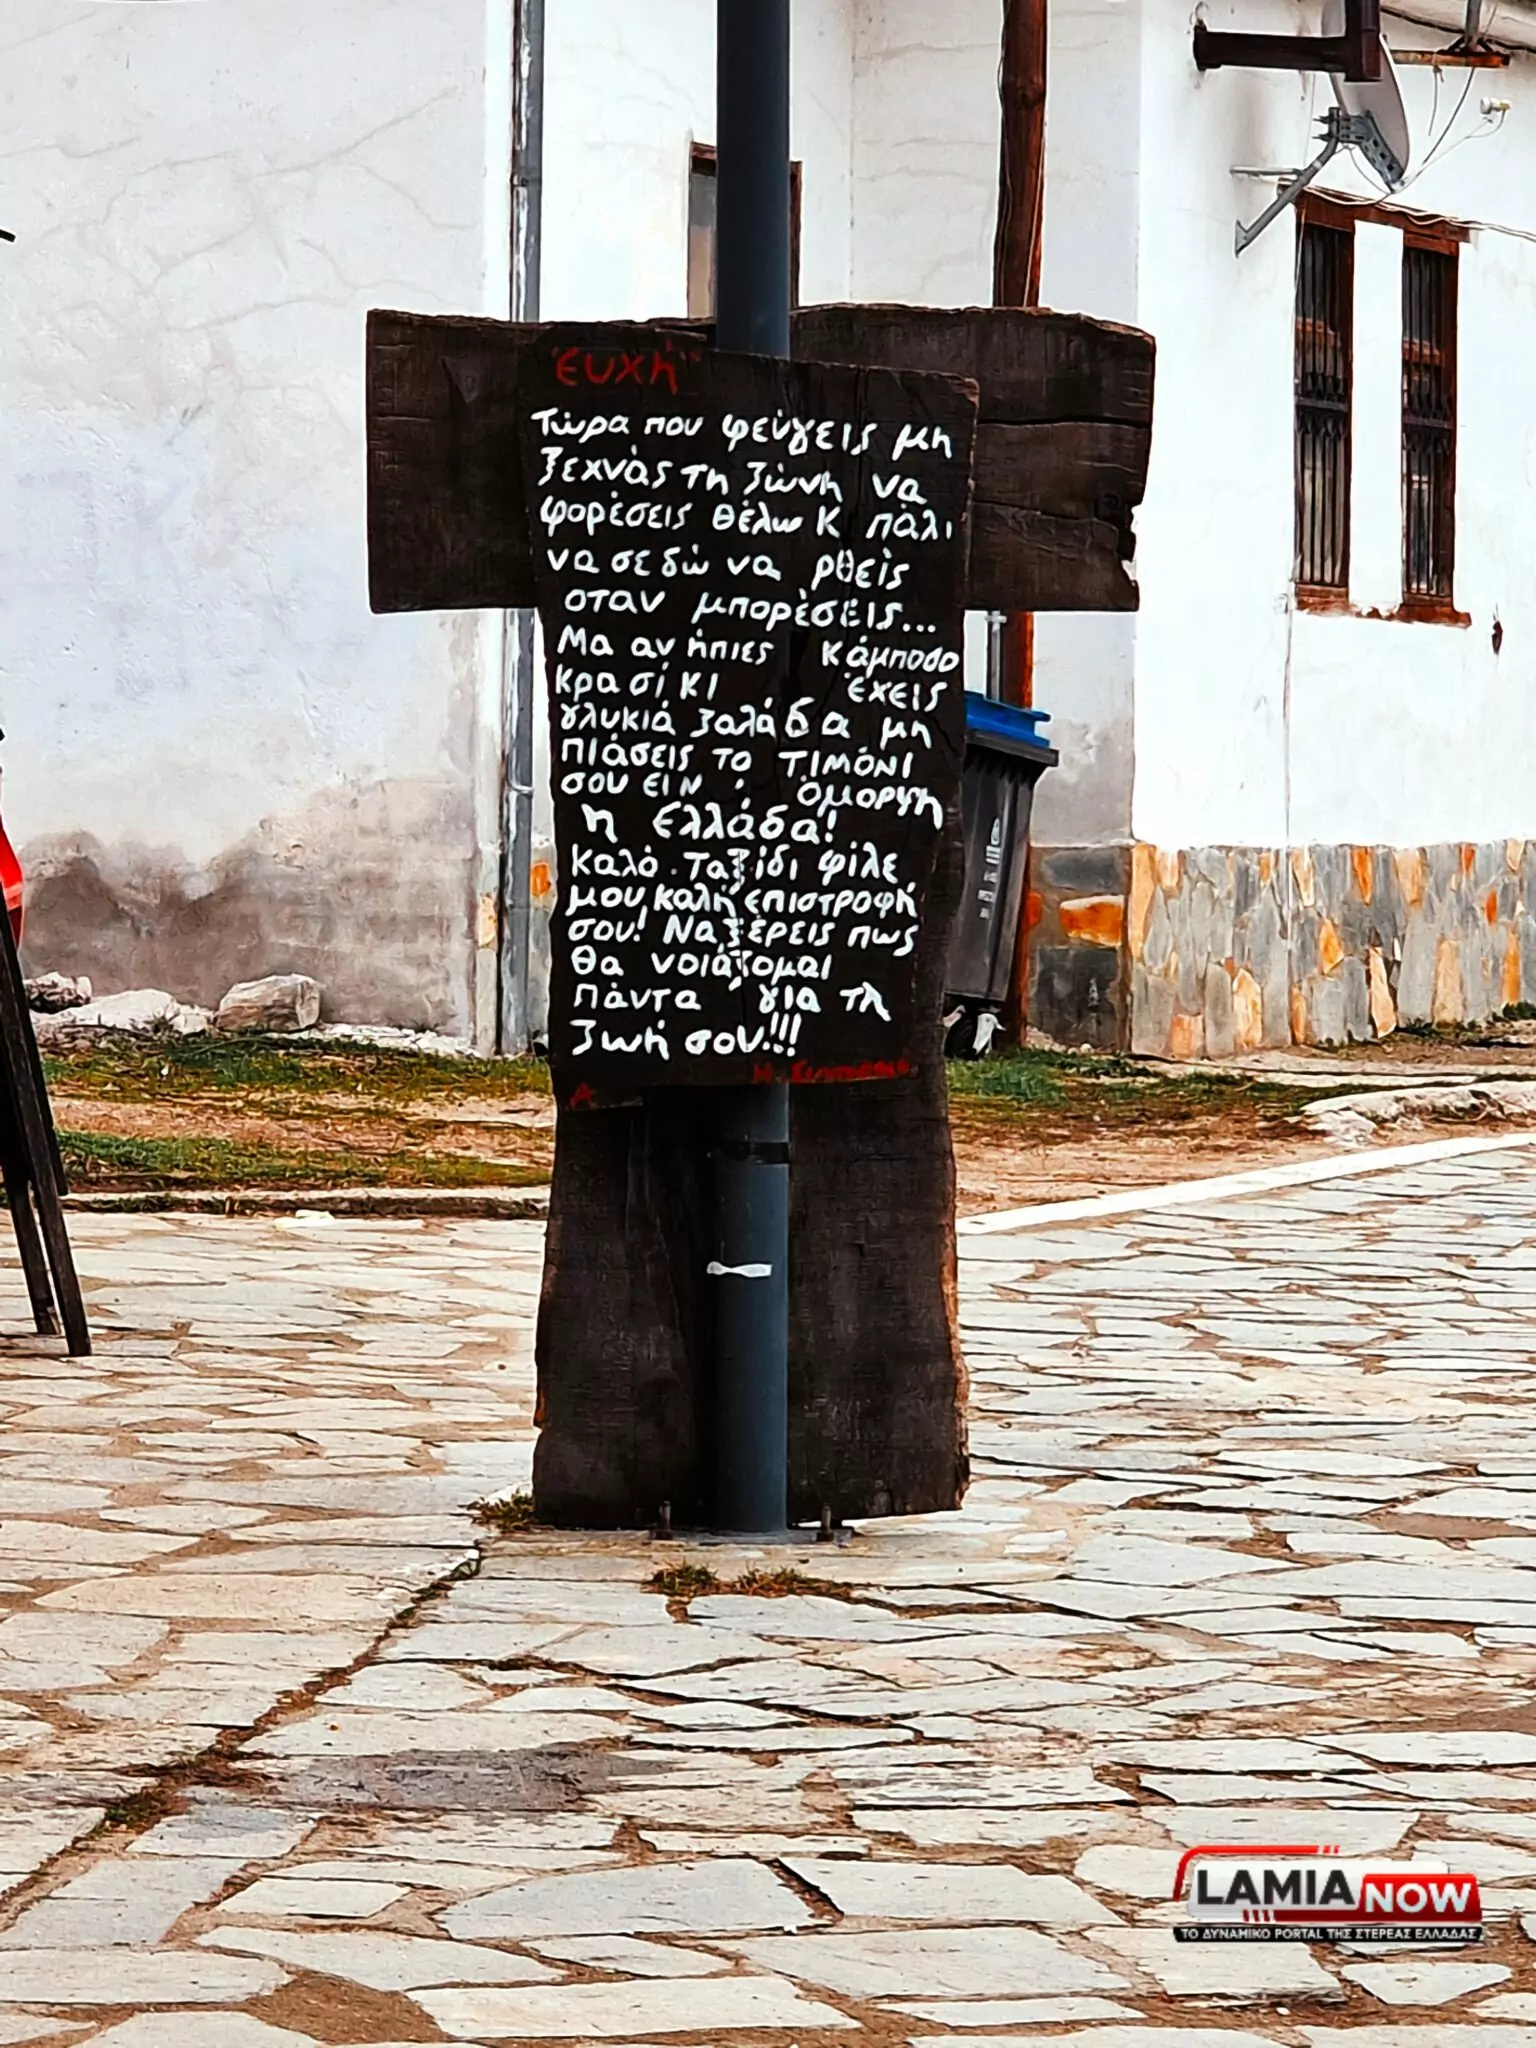 "Ευχή"
Τώρα που φεύγεις μη
ξεχνάς τη ζώνη να
φορέσεις θέλω κ πάλι
να σε δώ να ρθείς
οταν μπορέσεις...
Μα αν ήπιες κάμποσο
κρασί κι έχεις
γλυκιά ζαλάδα μη
πιάσεις το τιμόνι
σου ειν' όμορφη
η Ελλάδα!
Καλό ταξίδι φίλε
μου, καλή επιστροφή
σου! Να ξέρεις πως
θα νοιάζομαι
πάντα για τη
ζωή σου!!!
Α
LAMIA NOW
ΤΟ ΔΥΝΑΜΙΚΟ PORTAL ΤΗΣ ΣΤΕΡΕΑΣ ΕΛΛΑΔΑΣ